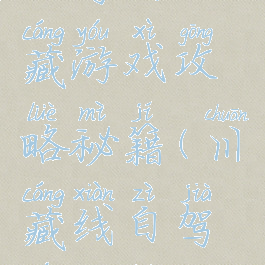 cáng yóu xì gōng
藏游戏攻
lüè mì jí chuān
略秘籍(川
cáng xiàn zì jià
藏线自驾